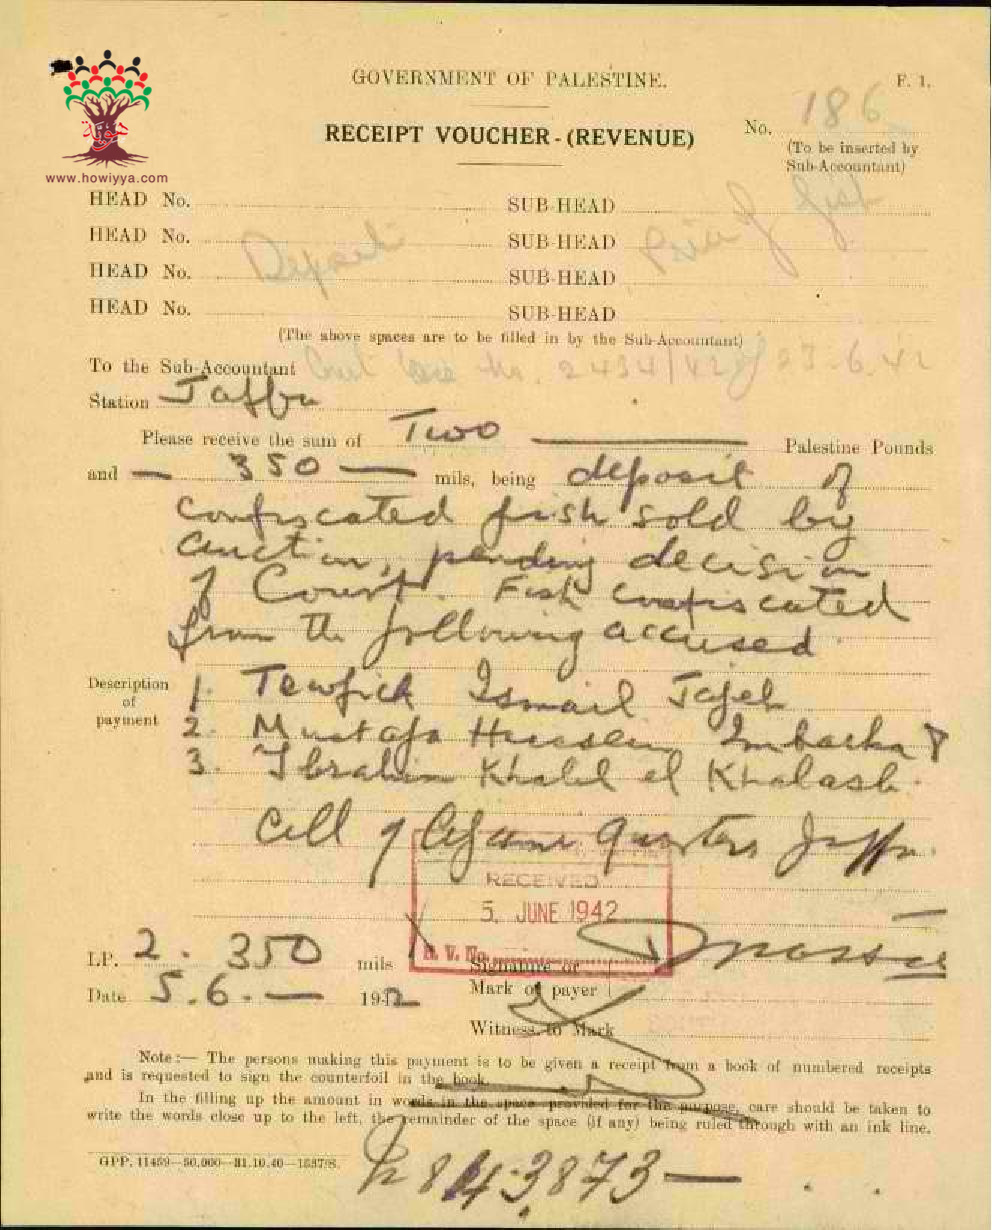 GOVERNMENT OF PALESTINE.
F. 1.
RECEIPT VOUCHER - (REVENUE)
No. 186
(To be inserted by
Sub-Accountant)
www.howiyya.com
HEAD No. SUB-HEAD
HEAD No. Deposit SUB-HEAD Price of fish
HEAD No. SUB-HEAD
HEAD No. SUB-HEAD
(The above spaces are to be filled in by the Sub-Accountant)
To the Sub-Accountant
Case No. 2434/42 of 23.6.42
Station Jaffa
Please receive the sum of Two Palestine Pounds
and — 350 — mils, being deposit of
confiscated fish sold by
auction, pending decision
of Court. Fish confiscated
from the following accused
Description of payment
1. Tewfick Ismail
2. Mustafa Hussein
3. Ibrahim Khalil el Khalash.
all of Ajami Quarters Jaffa.
RECEIVED
5. JUNE 1942
R. V. No.
LP. 2. 350 mils
Signature or
Mark of payer
Date 5.6. — 1942
Witness to Mark
Note :— The persons making this payment is to be given a receipt from a book of numbered receipts
and is requested to sign the counterfoil in the book.
In the filling up the amount in words in the space provided for the purpose, care should be taken to
write the words close up to the left, the remainder of the space (if any) being ruled through with an ink line.
GPP. 11459—50.000—31.10.40—1537/S.